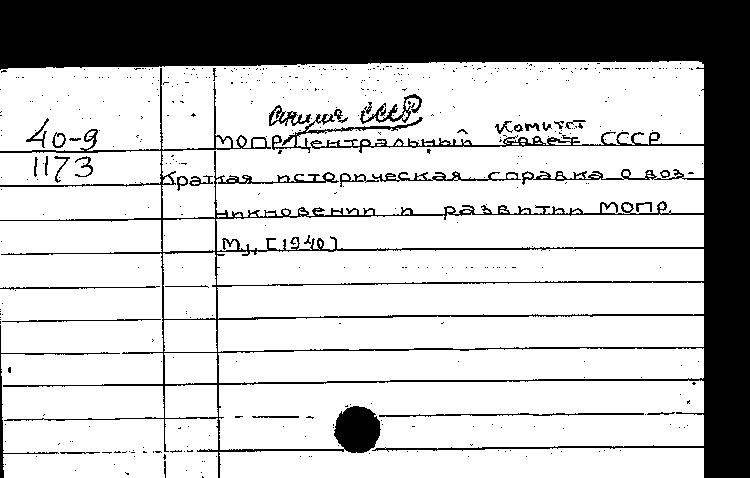 секция СССР
40-9 МОПР. Центральный комитет совет СССР
1173 Краткая историческая справка о воз-
никновении и развитии МОПР.
М., [1940]